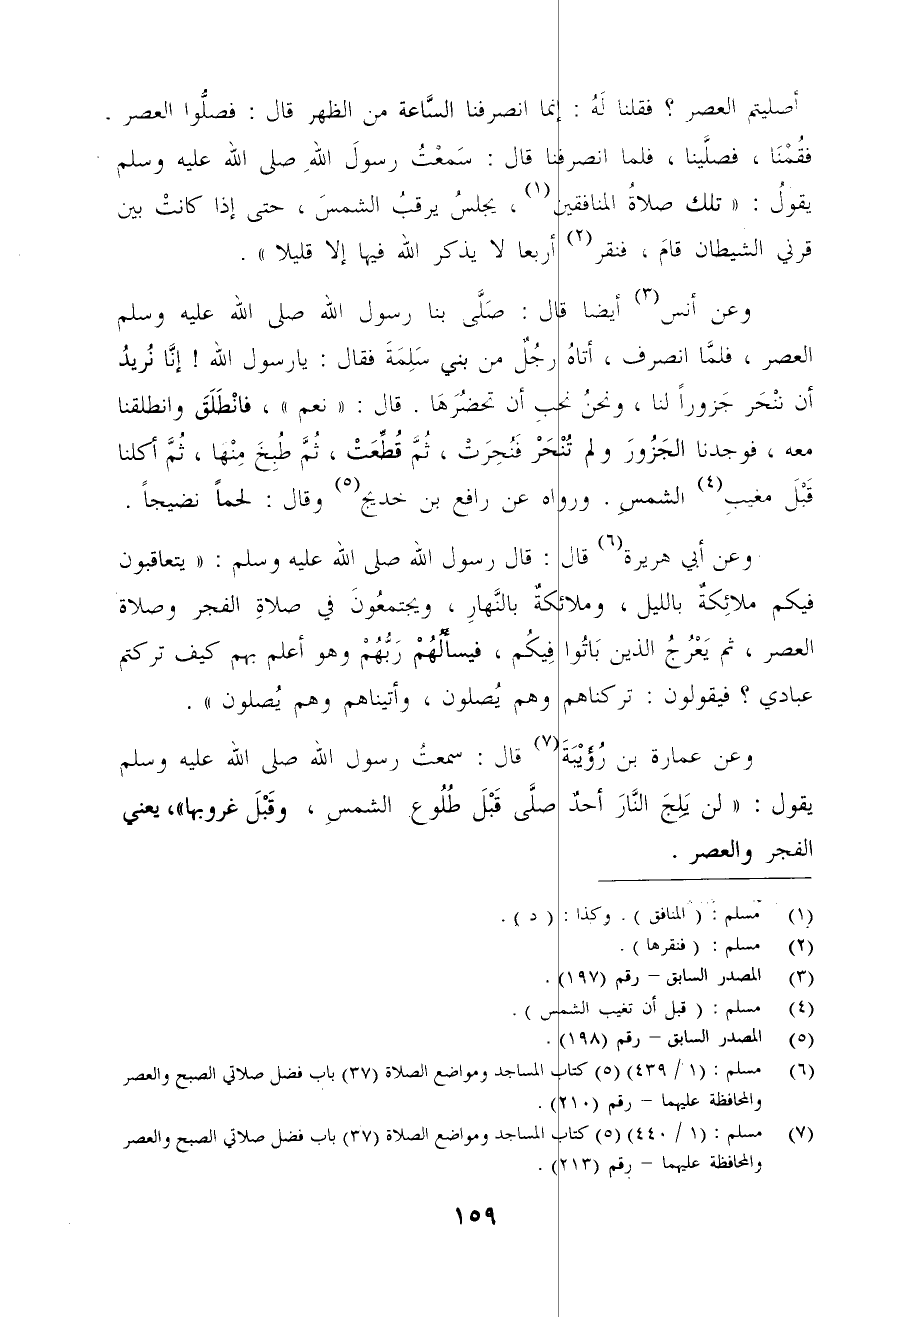 أصليتم العصر ؟ فقلنا لَهُ : إنما انصرفنا السَّاعة من الظهر قال : فصلُّوا العصر .
فقُمْنَا ، فصلَّينا ، فلما انصرفنا قال : سَمعْتُ رسولَ اللهِ صلى الله عليه وسلم
يقولُ : « تلك صلاةُ المنافقين(١) ، يجلسُ يرقبُ الشمسَ ، حتى إذا كانتْ بين
قرني الشيطان قامَ ، فنقر(٢) أربعا لا يذكر الله فيها إلا قليلا » .
وعن أنس(٣) أيضا قال : صَلَّى بنا رسول الله صلى الله عليه وسلم
العصر ، فلمَّا انصرف ، أتاهُ رجُلٌ من بني سَلِمَةَ فقال : يارسول الله ! إنَّا نُريدُ
أن ننْحَر جَزوراً لنا ، ونحنُ نحب أن تحضُرَهَا . قال : « نعم » ، فانْطَلَقَ وانطلقنا
معه ، فوجدنا الجَزُورَ ولم تُنْحَرْ فَنُحِرَتْ ، ثُمَّ قُطِّعَتْ ، ثُمَّ طُبِخَ مِنْهَا ، ثُمَّ أكلنا
قَبْلَ مغيبِ(٤) الشمسِ . ورواه عن رافع بن خديج(٥) وقال : لحماً نضيجاً .
وعن أبي هريرة(٦) قال : قال رسول الله صلى الله عليه وسلم : « يتعاقبون
فيكم ملائِكةٌ بالليل ، وملائكةٌ بالنَّهارِ ، ويجتمعُونَ في صلاةِ الفجر وصلاة
العصر ، ثم يَعْرُجُ الذين بَاتُوا فِيكُم ، فيسألُهُمْ رَبُّهُمْ وهو أعلم بهم كيف تركتم
عبادي ؟ فيقولون : تركناهم وهم يُصلون ، وأتيناهم وهم يُصلون » .
وعن عمارة بن رُؤَيْبَةَ(٧) قال : سمعتُ رسول الله صلى الله عليه وسلم
يقول : « لن يَلِجَ النَّارَ أحدٌ صلَّى قَبْلَ طُلُوعِ الشمسِ ، وقَبْلَ غروبها»، يعني
الفجر والعصر .
(١) مسلم : ( المنافق ) . وكذا : ( د ) .
(٢) مسلم : ( فنقرها ) .
(٣) المصدر السابق – رقم (١٩٧) .
(٤) مسلم : ( قبل أن تغيب الشمس ) .
(٥) المصدر السابق – رقم (١٩٨) .
(٦) مسلم : (١ / ٤٣٩) (٥) كتاب المساجد ومواضع الصلاة (٣٧) باب فضل صلاتي الصبح والعصر
والمحافظة عليهما – رقم (٢١٠) .
(٧) مسلم : (١ / ٤٤٠) (٥) كتاب المساجد ومواضع الصلاة (٣٧) باب فضل صلاتي الصبح والعصر
والمحافظة عليهما – رقم (٢١٣) .
١٥٩